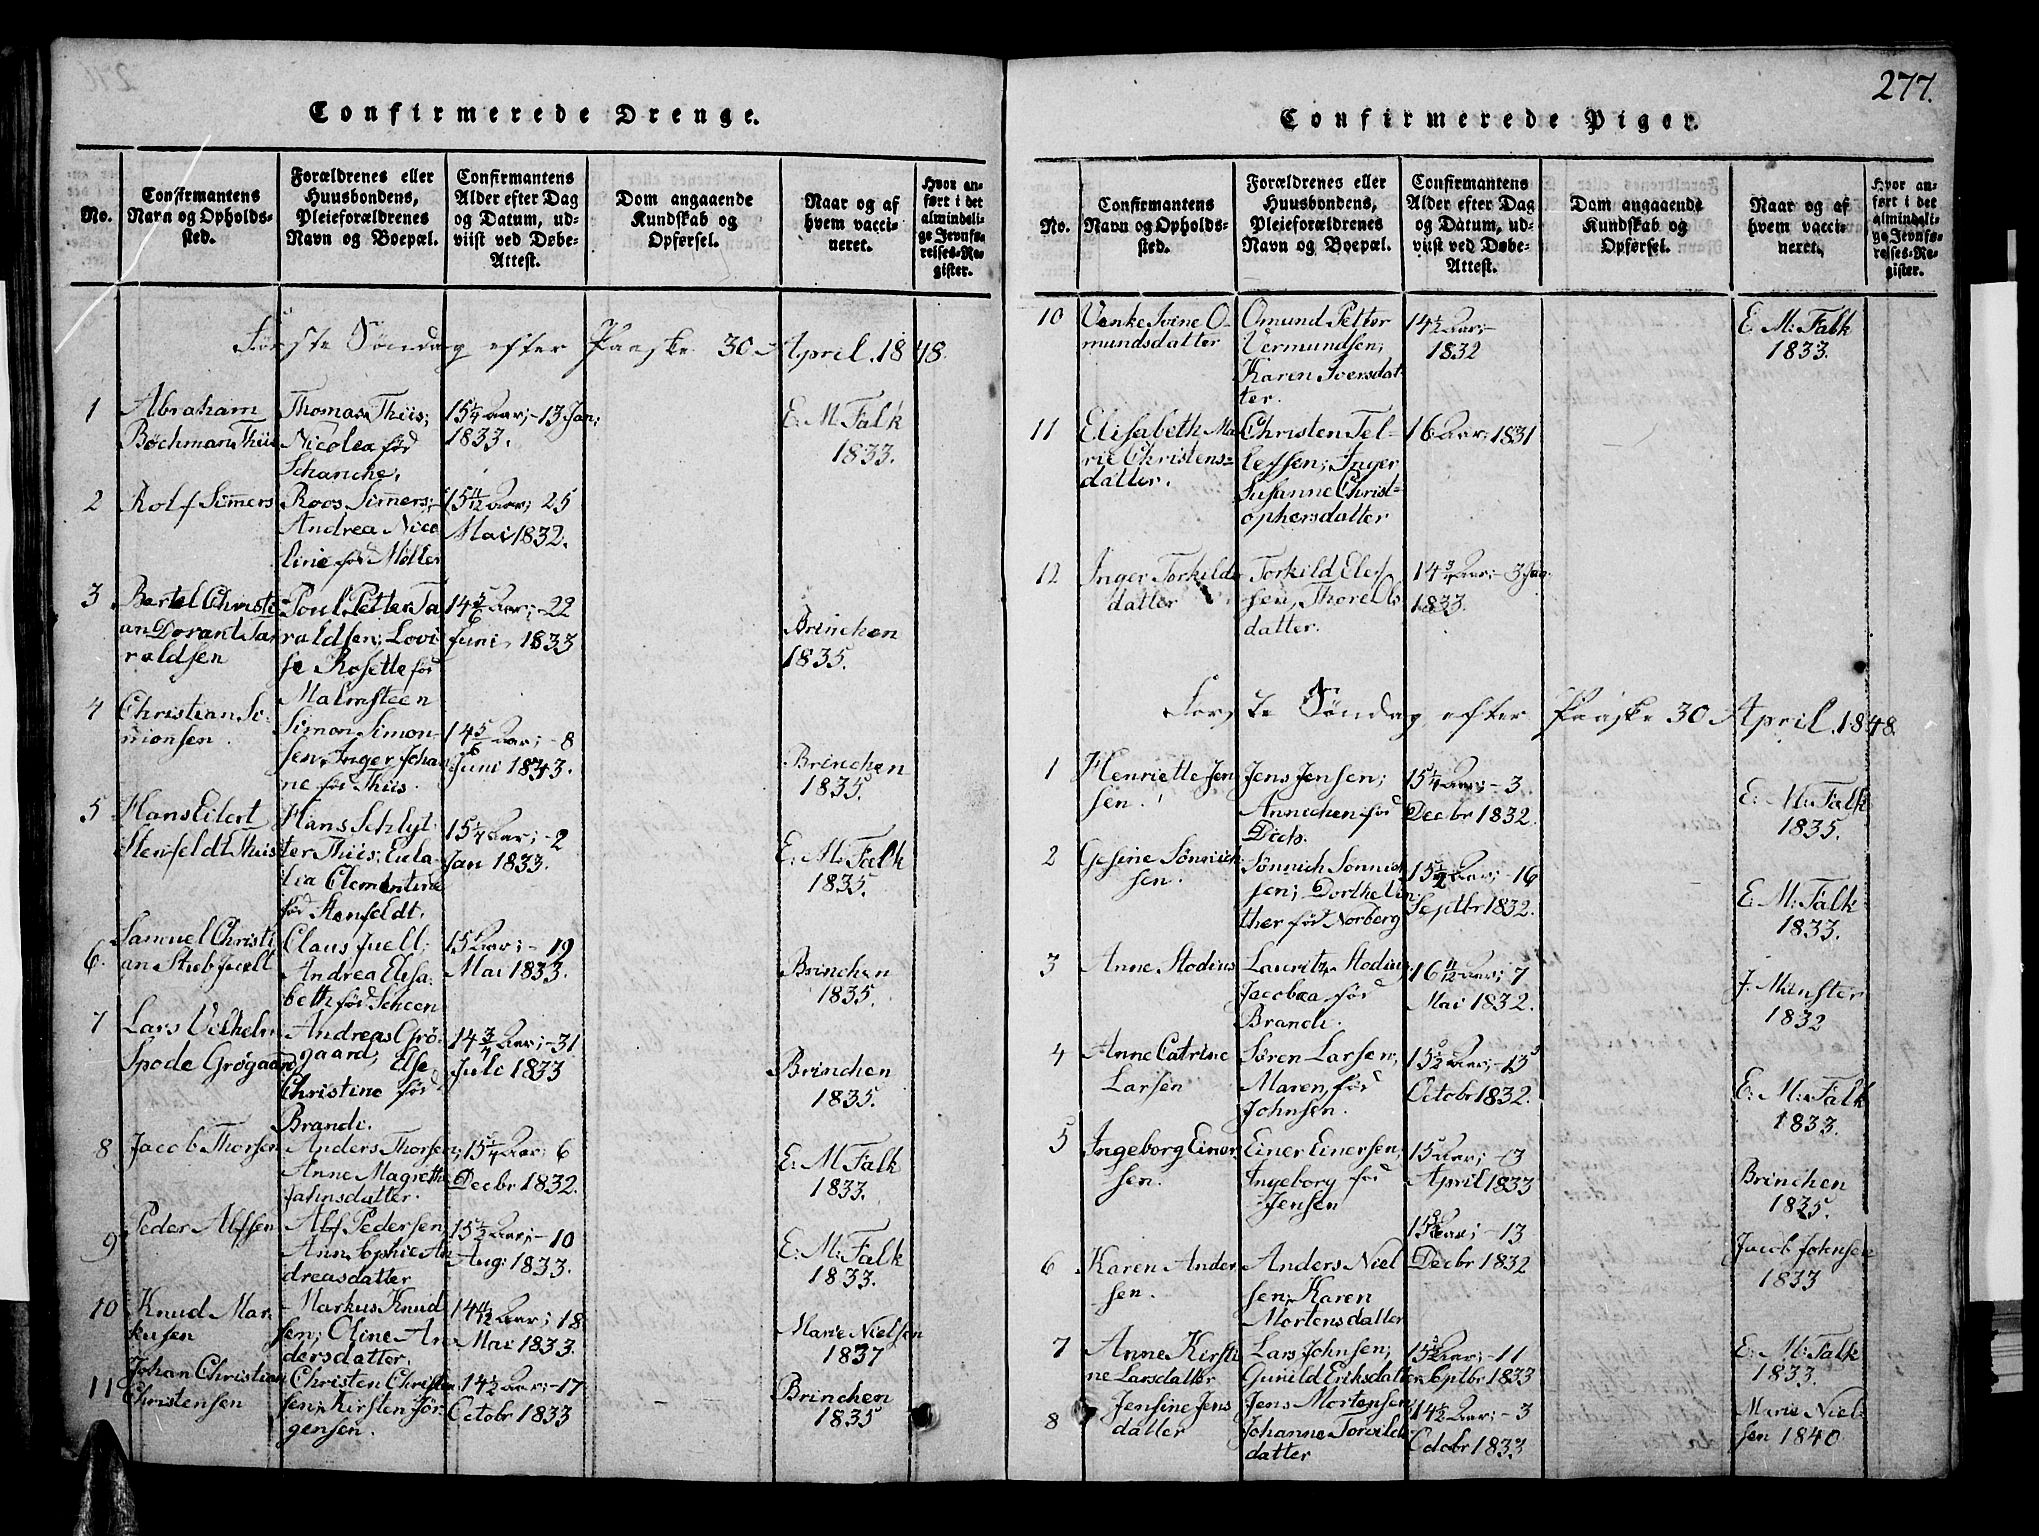 277.
Confirmerede Drenge.
No.
Confirmantens
Navn og Opholds-
sted.
Forældrenes eller
Huusbondens,
Pleieforældrenes
Navn og Boepæl.
Confirmantens
Alder efter Dag
og Datum, ud-
viist ved Døbe-
Attest.
Dom angaaende
Kundskab og
Opførsel.
Naar og af
hvem vacci-
neret.
Hvor an-
ført i det
almindeli-
ge Jevnfø-
relses-Re-
gister.
Første Søndag efter Paaske 30 April. 1848.
1
Abraham
Bøchman Thiis
Thomas Thiis;
Nicolea fød
Schancke.
15 1/4 Aar; - 13 Jan:
1833.
E: M: Falk
1833.
2
Rolf Simers
Roos Simers;
Andrea Nico
line fød Møller
15 11/12 Aar; 25
Mai 1832.
3
Bertel Christi-
an Dorant Ta-
raldsen
Poul Petter Ta
raldsen; Lovi
se Rosette fød
Malmsteen
14 5/6 Aar; - 22
Juni 1833
Brinchen
1835.
4
Christian Si-
monsen.
Simon Simon-
sen, Inger Johan
ne fød Thiis.
14 5/6 Aar; - 8
Juni 1833.
Brinchen
1835.
5
Hans Eilert
Stenfeldt Thiis
Hans Schlyt-
ter Thiis; Eula-
lia Clementine
fød Stenfeldt.
15 1/4 Aar; - 2
Jan 1833.
E: M: Falk
1835.
6.
Samuel Christi
an Stub Juell
Claus Juell;
Andrea Elisa-
beth fød Scheen
15 Aar; - 19
Mai 1833.
Brinchen
1835.
7
Lars Vilhelm
Spode Grøgaard
Andreas Grø-
gaard, Else
Christine fød
Brandi.
14 3/4 Aar; - 31
Juli 1833
Brinchen
1835.
8
Jacob Thorsen
Anders Thorsen;
Anne Magrethe
Jahnsdatter.
15 1/4 Aar; 6
Decbr 1832.
E: M Falk
1833.
9
Peder Alfsen
Alf Pedersen,
Ann Sophie An
dreasdatter
15 1/2 Aar; - 10
Aug: 1833.
E: M: Falk
1833.
10
Knud Mar-
kusen
Markus Knud
sen; Oline An
dersdatter.
14 11/12 Aar; 18
Mai 1833.
Marie Nielsen
1837
11
Johan Christian
Christensen
Christen Christen
sen, Kirsten Jør-
gensen.
14 1/2 Aar; - 17
Octobr 1833
Brinchen
1835
Confirmerede Piger.
No.
Confirmantens
Navn og Opholds-
sted.
Forældrenes eller
Huusbondens,
Pleieforældrenes
Navn og Boepæl.
Confirmantens
Alder efter Dag
og Datum, ud-
viist ved Døbe-
Attest.
Dom angaaende
Kundskab og
Opførsel.
Naar og af
hvem vacci-
neret.
Hvor an-
ført i det
almindeli-
ge Jevnfø-
relses-Re-
gister.
10
Venke Ivine O-
mundsdatter
Omund Petter
Vermundsen;
Karen Iversdat-
ter.
14 1/2 Aar; -
1832
E M: Falk
1833.
11
Elisabeth Ma
rie Christens-
datter.
Christen Tel-
lefsen; Inger
Susanne Christ-
ophersdatter
16 Aar; 1831
12
Inger Torkilds
datter
Torkild Elef
sen, Thore Ols
datter.
14 3/4 Aar; - 3 Jan
1833.
Første Søndag efter Paaske 30 April. 1848.
1
Henriette Jen
sen.
Jens Jensen;
Annichen fød
Dichs.
15 1/4 Aar; - 3.
Decbr 1832.
E: M: Falk
1835.
2
Gesine Sønnich
sen.
Sønnich Sønnich
sen; Dorthe Un
ther fød Norberg
15 1/2 Aar; - 16
Septbr 1832.
E: M: Falk
1833.
3
Anne Stodius
Lauritz Stodius
Jacobea fød
Brandi.
16 11/12 Aar; 7
Mai 1832.
J. Münster
1832
4
Anne Catrine
Larsen
Søren Larsen,
Maren, fød
Johnsen.
15 1/2 Aar; - 15
Octobr 1832.
E: M: Falk
1833.
5
Ingeborg Einer
sen.
Einer Einersen,
Ingeborg fød
Jensen
15 Aar; - 13
April 1833
Brinchen
1835.
6
Karen Ander
sen.
Anders Niel
sen; Karen
Mortensdatter
15 Aar; - 13
Decbr 1832
Jacob Johnsen
1833
7
Anne Kirsti
ne Larsdatter
Lars Johnsen;
Gunild Eriksdatter
15 Aar; - 11
Septbr 1833
E: M: Falk
1833.
8
Jensine Jens
datter
Jens Mortensen
Johanne Torvilds
datter
14 1/2 Aar; - 3
Octobr 1833
Marie Niel-
sen 1840